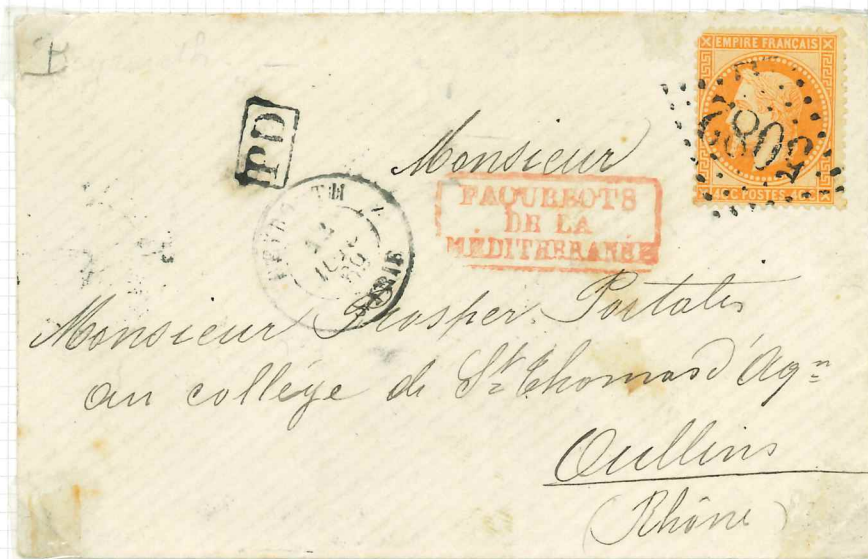 EMPIRE FRANÇAIS
PD
Monsieur
PAQUEBOTS
DE LA
MÉDITERRANÉE
BEYROUTH
SYRIE
Monsieur Prosper Portalis
au collége de St Thomas d'Aqn
Oullins
(Rhône)